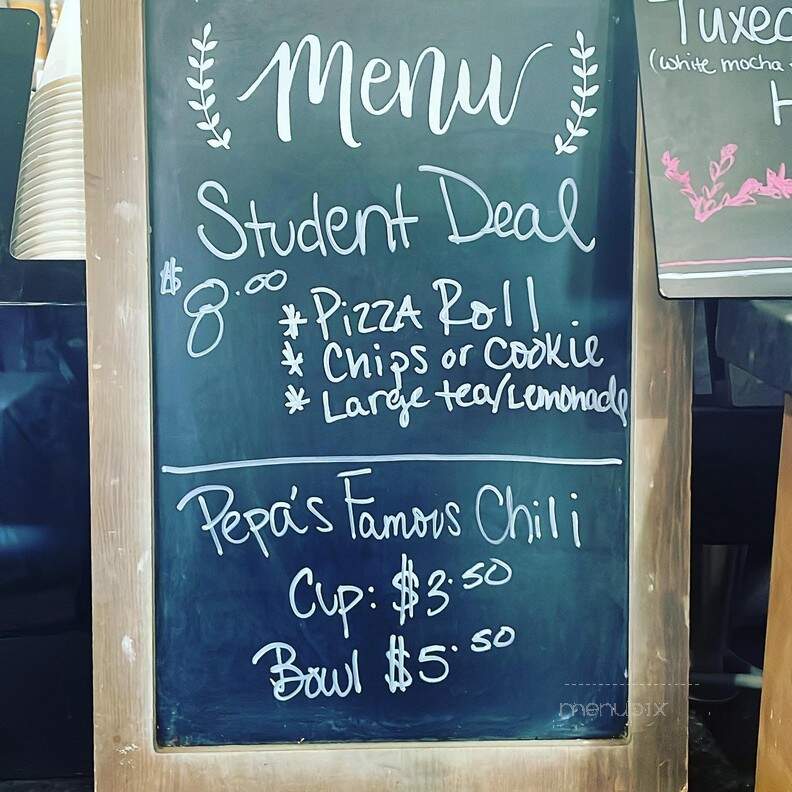 Menu
Student Deal
$8.00
* Pizza Roll
* Chips or Cookie
* Large tea/Lemonade
Pepa's Famous Chili
Cup: $3.50
Bowl $5.50
(white mocha
menupix